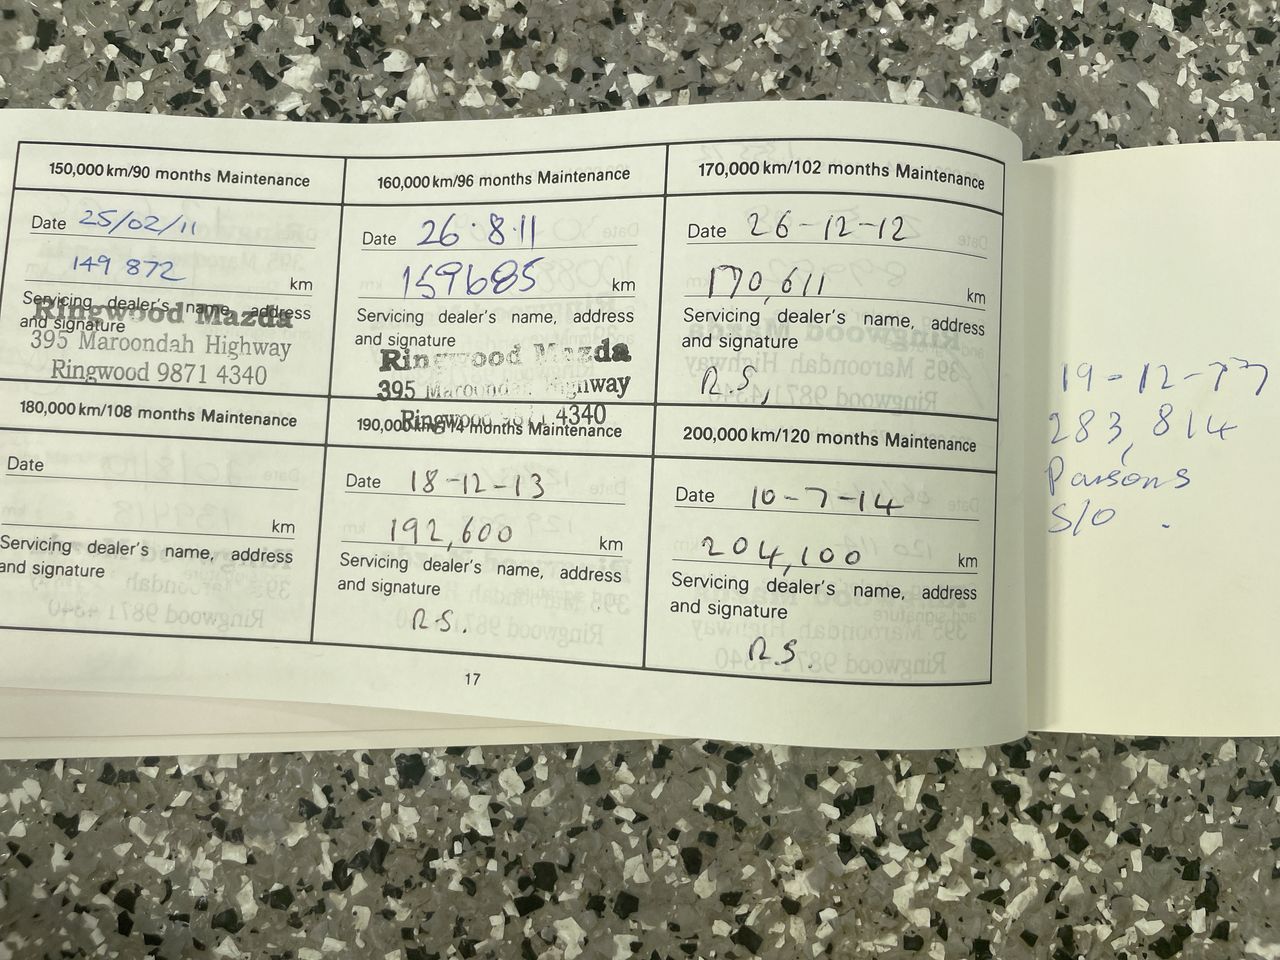 150,000 km/90 months Maintenance
Date 25/02/11
149 872 km
Servicing dealer's name, address
and signature
Ringwood Mazda
395 Maroondah Highway
Ringwood 9871 4340
160,000 km/96 months Maintenance
Date 26.8.11
159685 km
Servicing dealer's name, address
and signature
Ringwood Mazda
395 Maroondah Highway
Ringwood 9871 4340
170,000 km/102 months Maintenance
Date 26-12-12
170,611 km
Servicing dealer's name, address
and signature
R.S,
180,000 km/108 months Maintenance
Date
km
Servicing dealer's name, address
and signature
190,000 months Maintenance
Date 18-12-13
192,600 km
Servicing dealer's name, address
and signature
R.S.
200,000 km/120 months Maintenance
Date 10-7-14
204,100 km
Servicing dealer's name, address
and signature
R.S.
17
283,814
Parsons
S/O .